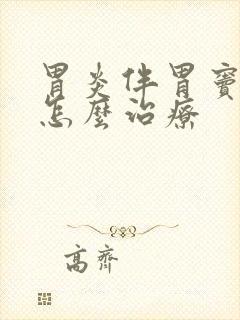 胃炎伴胃窦
怎麼治療
高齊